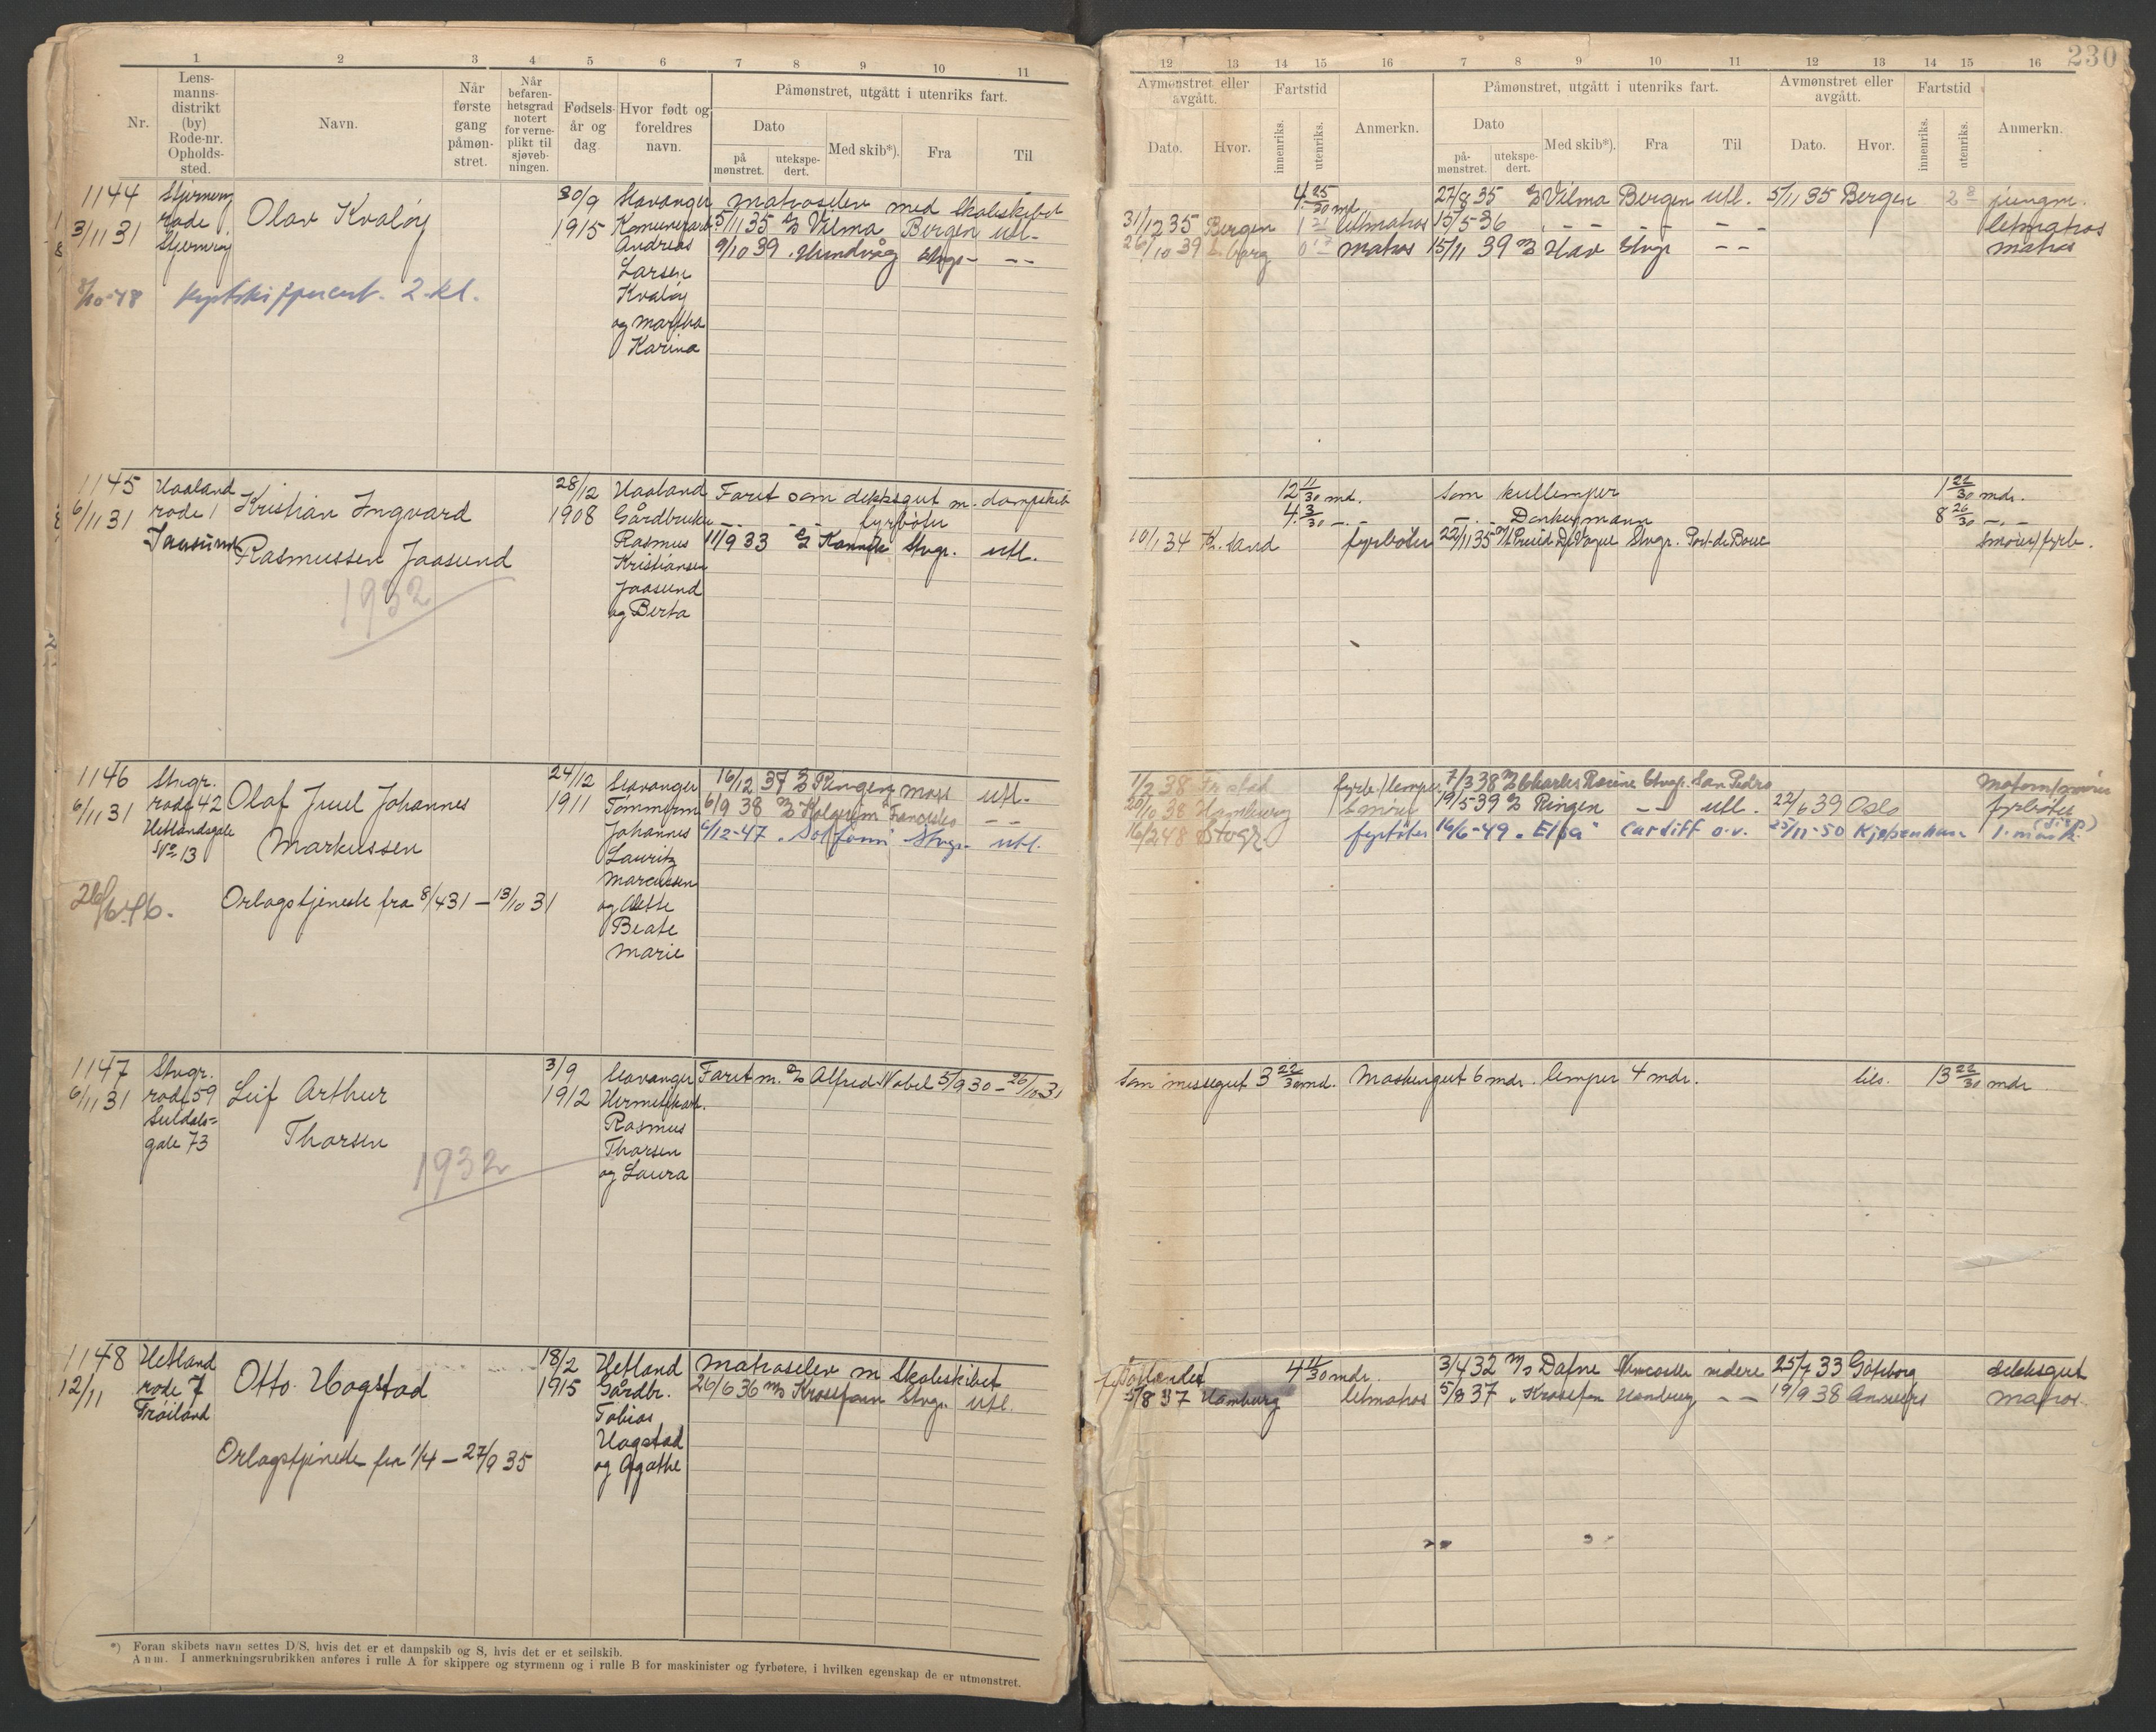 230
1 2 3 4 5 6 7 8 9 10 11
Nr.
Lens-
manns-
distrikt
(by)
Rode-nr.
Opholds-
sted.
Navn.
Når
første
gang
påmøn-
stret.
Når
befaren-
hetsgrad
notert
for verne-
plikt til
sjøveb-
ningen.
Fødsels-
år og
dag
Hvor født og
foreldres
navn.
Påmønstret, utgått i utenriks fart.
Dato
på
mønstret.
utekspe-
dert.
Med skib*).
Fra
Til
12 13 14 15 16 7 8 9 10 11 12 13 14 15 16
Avmønstret eller
avgått.
Dato.
Hvor.
Fartstid
innenriks.
utenriks.
Anmerkn.
Påmønstret, utgått i utenriks fart.
Dato
på-
mønstret.
utekspe-
dert.
Med skib*).
Fra
Til
Avmønstret eller
avgått.
Dato.
Hvor.
Fartstid
innenriks.
utenriks.
Anmerkn.
1144
3/11 31
rode 1
Olav Kvaløy
30/9
1915
Stavanger
Andreas
Larsen
Kvaløy
og Martha
Karina
8/10-48 2. kl.
Matroselev med Skoleskibet
5/11 35 D/S Vilma Bergen utl.
9/10 39 " Hundvåg Stvgr. - -
4 25/30 md.
27/8 35 D/S Vilma Bergen utl. 5/11 35 Bergen jungm.
31/12 35 Bergen lettmatros 15/5-36 - - - - letmatros
26/10 39 matros 15/11 39 D/S Hav Stvgr - - matros
1145
6/11 31
Haaland
rode 1
Jaasund
Kristian Ingvard
Rasmussen Jaasund
1932
28/12
1908
Haaland
Gårdbruker
Rasmus
Kristiansen
Jaasund
og Berta
Faret som dekksgut m. dampskib
- - - - fyrbøter
11/9 33 D/S Kannik Stvgr. utl.
12 11/30 md. Som kullemper 1 22/30 mdr.
4 3/30 - - - - Donkeymann 8 26/30 - -
10/1 34 Kr. sand fyrbøter 22/11 35 Stvgr. Port de Bouc smører/fyrb.
1146
6/11 31
Stvgr.
rode 42
Hetlandsgate
No 13
Olaf Juul Johannes
Markussen
26/6 46.
Orlogstjeneste fra 8/4 31 - 13/10 31
24/12
1911
Stavanger
Tømmerm
Johannes
Lauritz
Marcussen
og Alette
Beate
Marie
16/12 37 D/S Ringen Moss utl.
6/9 38 D/S - -
6/12-47 " Solfonn" Stvgr. utl.
1/2 38 fyrb./lemper 7/3 38 Charles Racine Stvgr. San Pedro
20/10 38 Hamburg smører 19/5 39 D/S Ringen - - utl. 22/6 39 Oslo fyrbøter
16/2 48 Stvgr. fyrbøter 16/6-49 " Elfa" Cardiff o.v. 25/11-50 Kjøbenhavn 1. mask. (disp)
1147
6/11 31
Stvgr.
rode 59
Suldals-
gate 73
Leif Arthur
Thorsen
1932
3/9
1912
Stavanger
Hermetikarb.
Rasmus
Thorsen
og Laura
Faret m. D/S Alfred Nobel 5/9 30 - 26/10 31
som messegut 3 22/30 md. Maskingut 6 mdr. lemper 4 mdr. tils. 13 22/30 mdr
1148
12/11
Hetland
rode 7
Frøiland
Otto Hogstad
Orlogstjeneste fra 1/4 - 27/9 35
18/2
1915
Hetland
Gårdbr.
Tobias
Hogstad
og Agathe
Matroselev m Skoleskibet
26/6 36 M/S Krossfonn Stvgr. utl.
4 11/30 mdr. 3/4 32 M/S Dafne Newcastle videre 25/7 33 Gøteborg deksgut
5/8 37 Hamburg letmatros 5/8 37 " Krossfon Hamburg - - 19/9 38 Antwerps matros.
*) Foran skibets navn settes D/S, hvis det er et dampskib og S, hvis det er et seilskib.
Anm. I anmerkningsrubrikken anføres i rulle A for skippere og styrmenn og i rulle B for maskinister og fyrbøtere, i hvilken egenskap de er utmønstret.